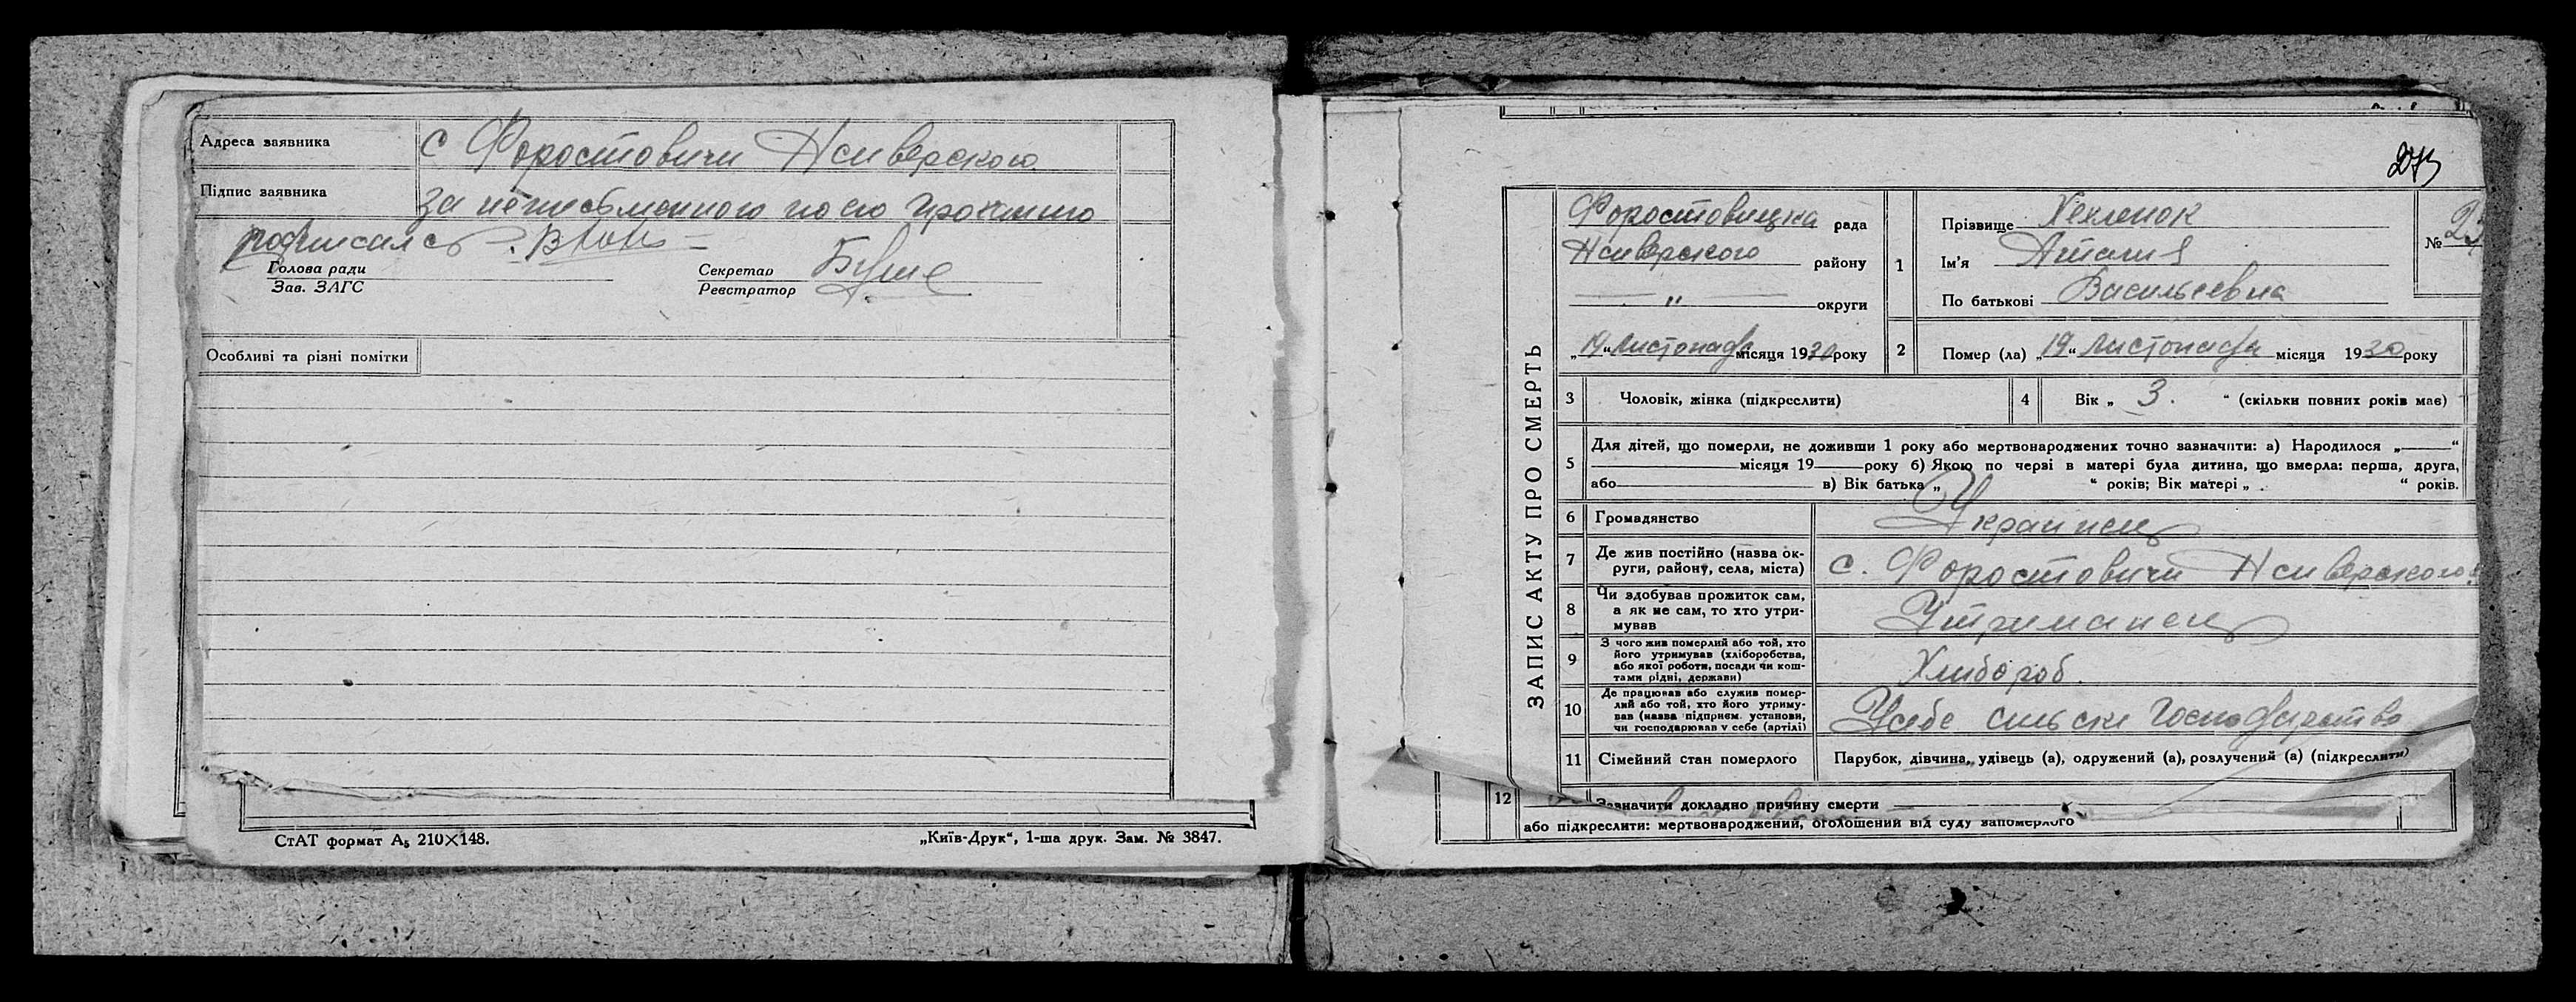 Адреса заявника с Форостовичи Нсиверского
Підпис заявника за неписьменного по его прозьбию
росписался
Голова ради
Зав. ЗАГС
Секретар
Реєстратор
Особливі та різні помітки
СтАТ формат А₅ 210×148.
„Київ-Друк“, 1-ша друк. Зам. № 3847.
273
ЗАПИС АКТУ ПРО СМЕРТЬ
Форостовицка рада
Нсиверского району
„ округи
„19“ Листопада місяця 1930 року
1
Прізвище Хехленок
Ім'я
По батькові Васильевна
№ 23
2 Помер (ла) „19“ Листопада місяця 1930 року
3 Чоловік, жінка (підкреслити)
4 Вік „ 3. “ (скільки повних років має)
5 Для дітей, що померли, не доживши 1 року або мертвонароджених точно зазначити: а) Народилося „ “
місяця 19 року б) Якою по черзі в матері була дитина, що вмерла: перша, друга,
або в) Вік батька „ “ років; Вік матері „ “ років.
6 Громадянство Украинец
7 Де жив постійно (назва ок-
руги, району, села, міста) с. Форостовичи Нсиверского
8 Чи здобував прожиток сам,
а як не сам, то хто утри-
мував Утриманец
9 З чого жив померлий або той, хто
його утримував (хліборобства,
або якої роботи, посади чи кош-
тами рідні, держави) Хлибороб.
10 Де працював або служив помер-
лий або той, хто його утриму-
вав (назва підприєм. установи,
чи господарював у себе (артілі) Усебе сильске Господарство
11 Сімейний стан померлого Парубок, дівчина, удівець (а), одружений (а), розлучений (а) (підкреслити)
12 Зазначити докладно причину смерти
або підкреслити: мертвонароджений, оголошений від суду запомерлого